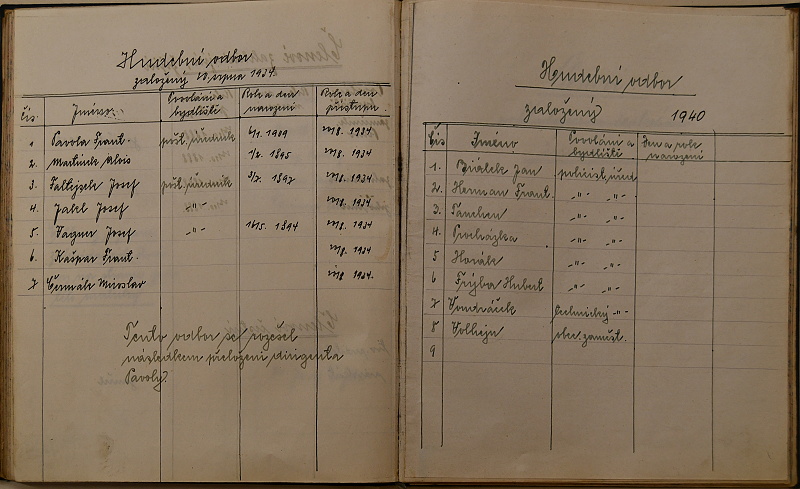 Hudební odbor
založený 13. srpna 1934.
čís. Jméno: Povolání a bydliště Rok a den narození Rok a den přístupu
1 Pavola Frant. pošt. úředník 6/1. 1909 1/8. 1934
2. Martinek Alois 1/2. 1895 1/8. 1934
3. Faltejsek Josef pošt. úředník 3/7. 1897 1/8. 1934
4. Jakel Josef -"- 1/8. 1934
5. Vagner Josef -"- 16/5. 1894 1/8. 1934
6. Kašpar Frant. 1/8. 1934
7 Čermák Miroslav 1/8 1934.
Tento odbor se rozešel
následkem přeložení dirigenta
Pavoly.
Hudební odbor
založený 1940
Čís Jméno Povolání a bydliště Den a rok narození
1. Bialek Jan policist. úřed
2. Herman Frant. -"- -"-
3. Tanchen -"- -"-
4. Procházka -"- -"-
5 Horák -"- -"-
6 Frýba Hubert -"- -"-
7 Vondráček technický -"-
8 Volhejn obec. zaměst.
9